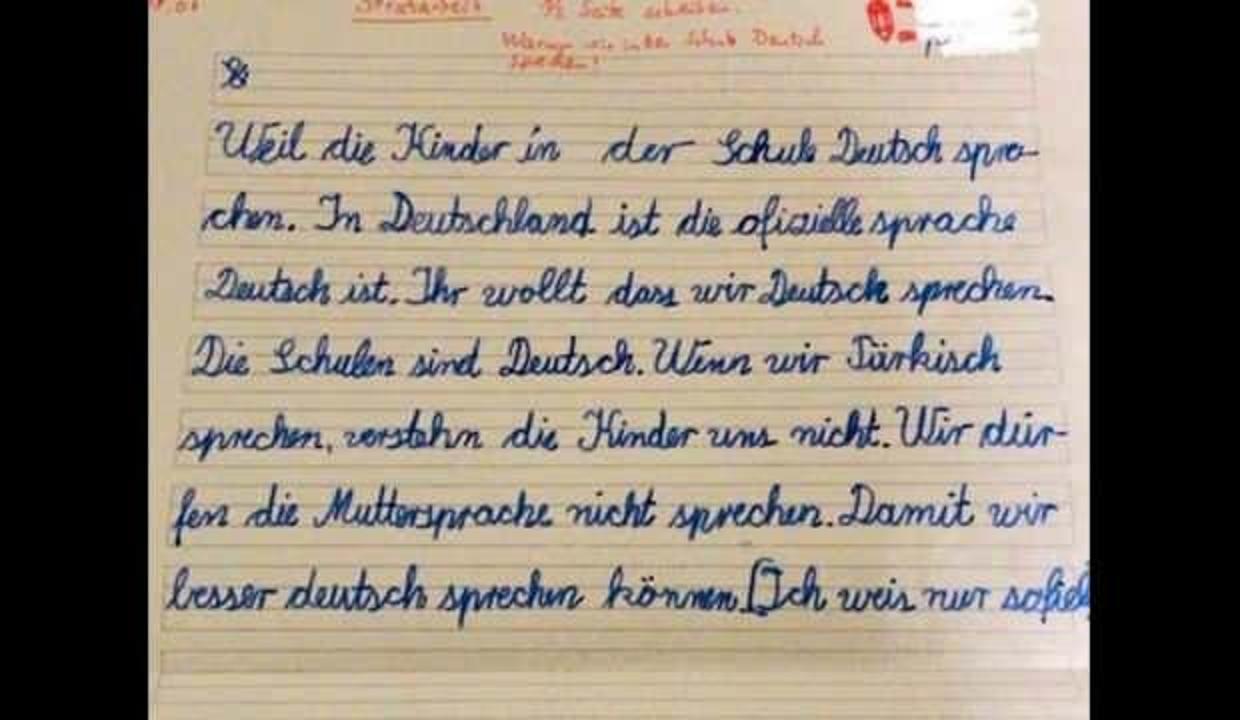 Strafarbeit ½ Seite schreiben.
Warum wir in der Schule Deutsch
sprechen!
Weil die Kinder in der Schule Deutsch spre-
chen. In Deutschland ist die ofizielle sprache
Deutsch ist. Ihr wollt dass wir Deutsch sprechen.
Die Schulen sind Deutsch. Wenn wir Türkisch
sprechen, verstehn die Kinder uns nicht. Wir dür-
fen die Muttersprache nicht sprechen. Damit wir
besser deutsch sprechen können. [Ich weis nur sofiel